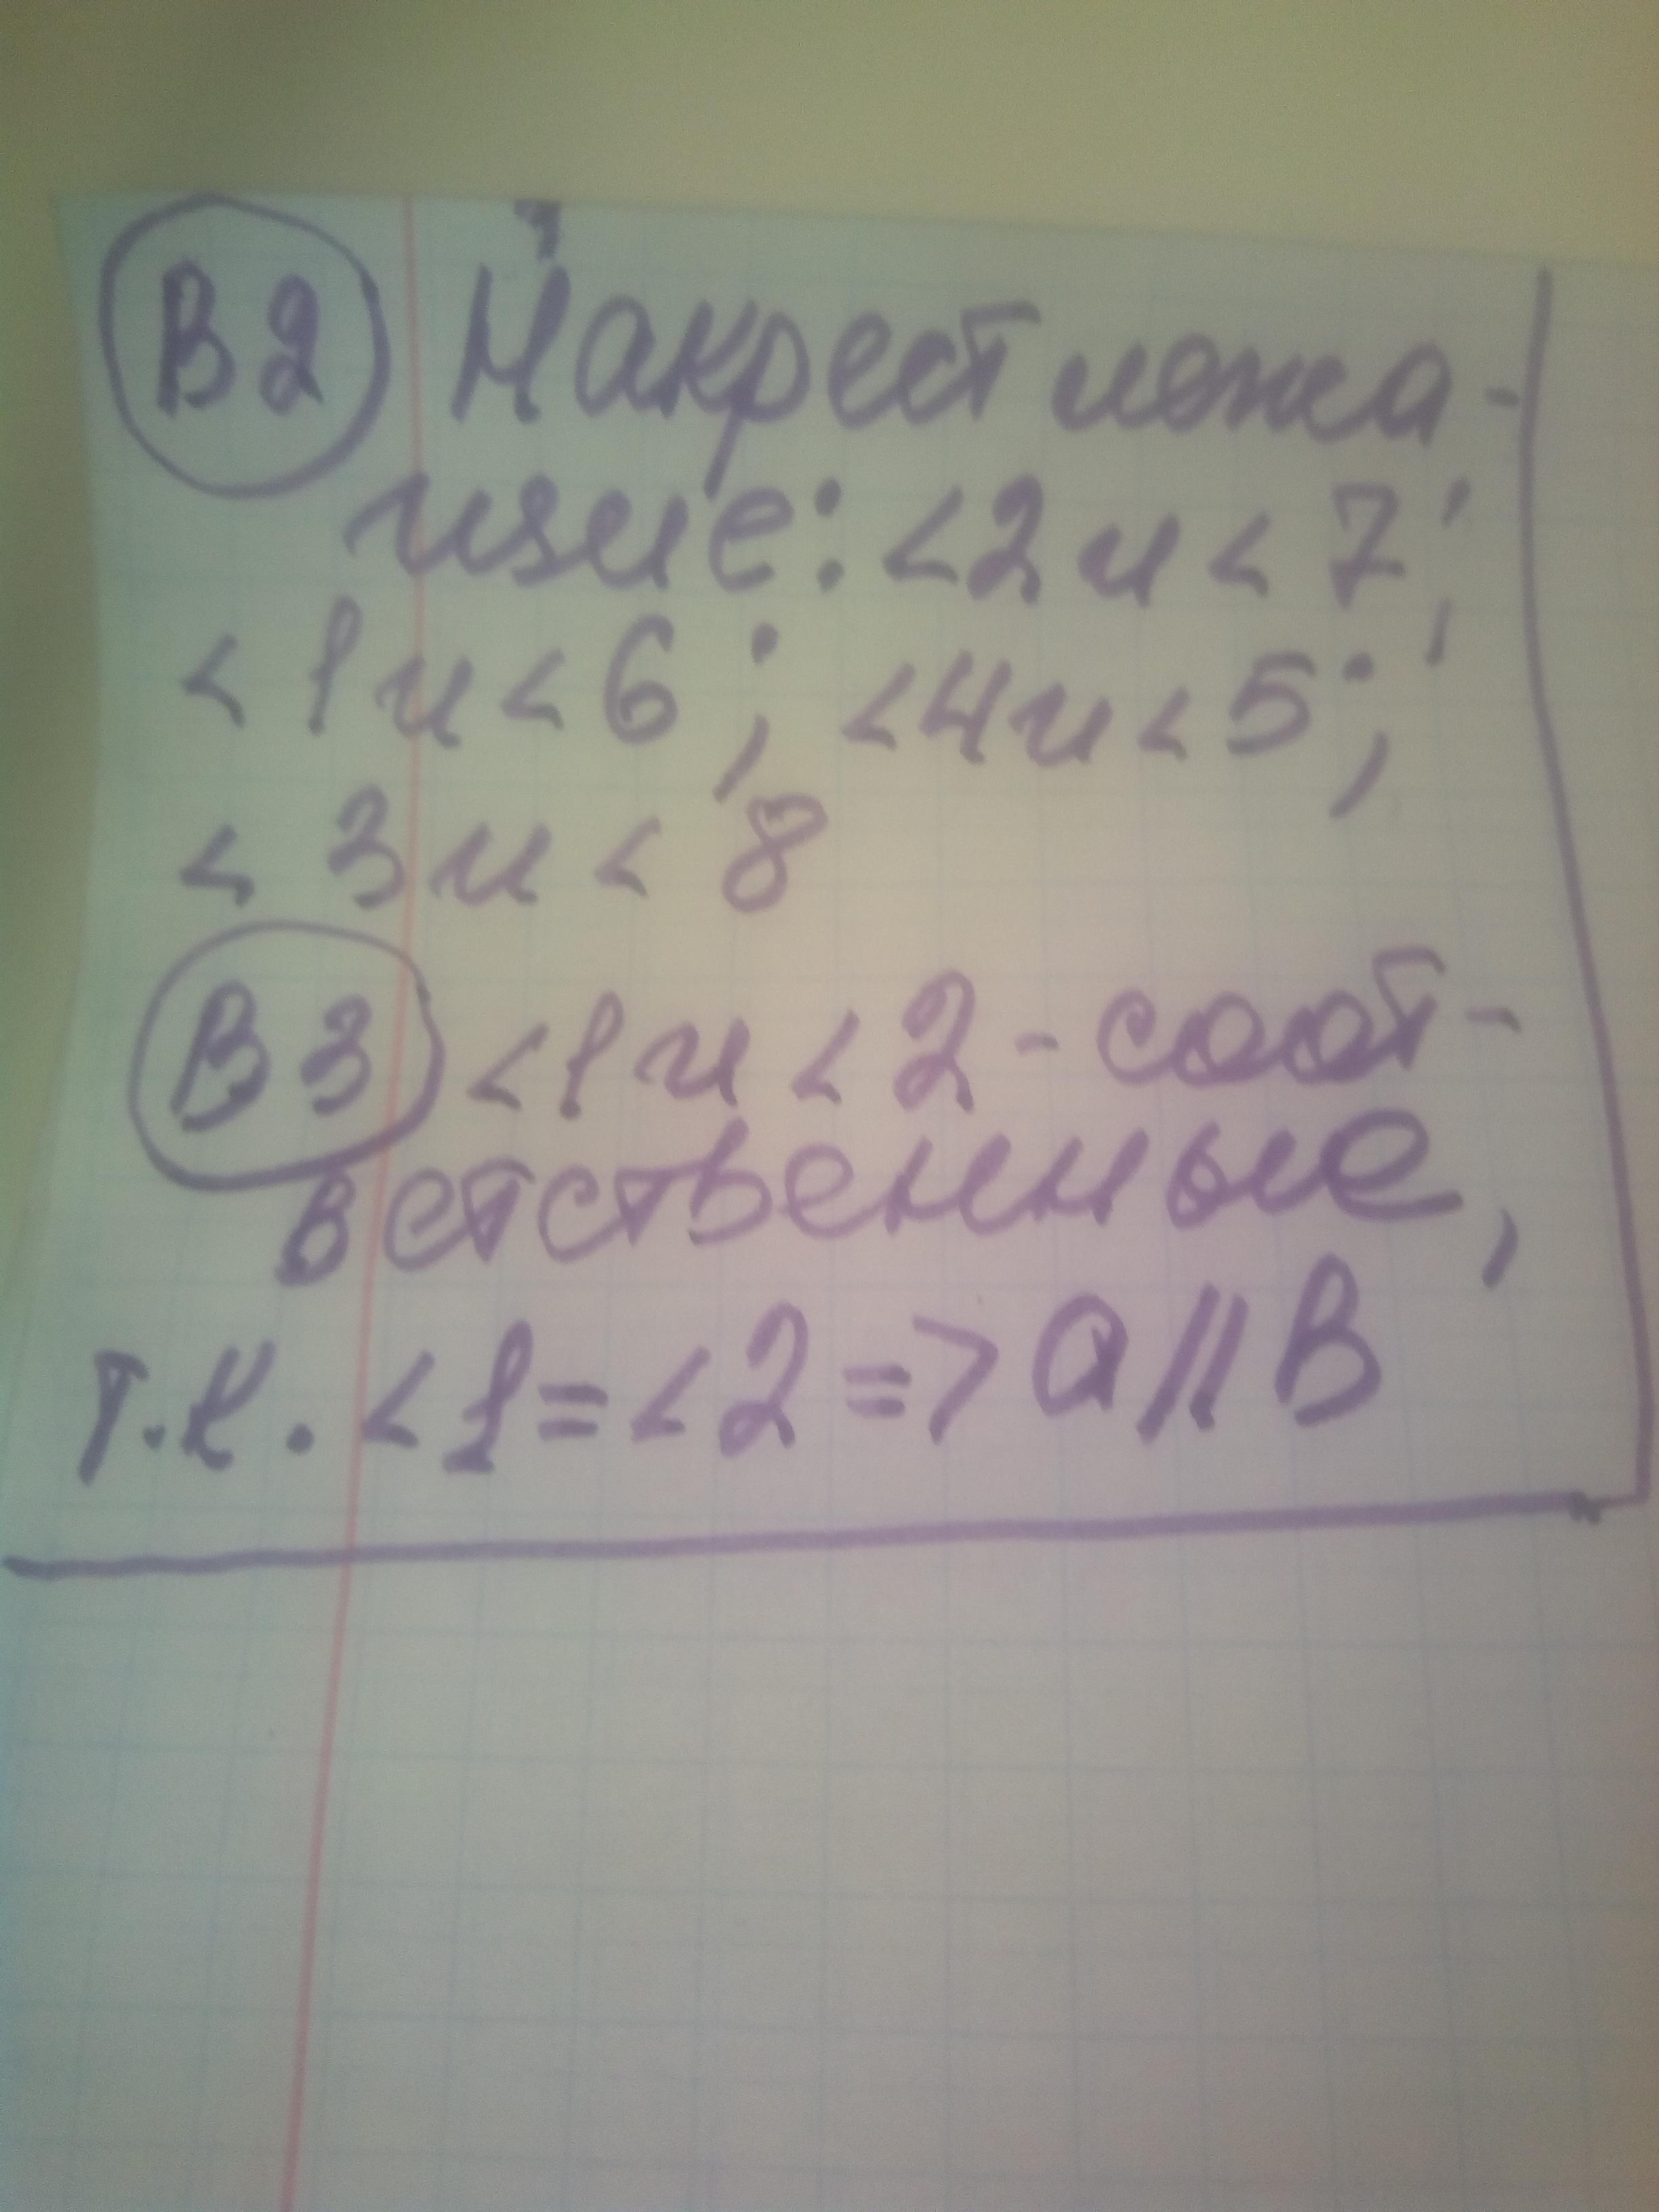 В2 Накрест лежа-
щие: <2 и < 7;
< 1 и < 6 ; < 4 и < 5 ;
< 3 и < 8
В3 < 1 и < 2 - соот-
ветственные,
т.к. < 1 = < 2 => a || B